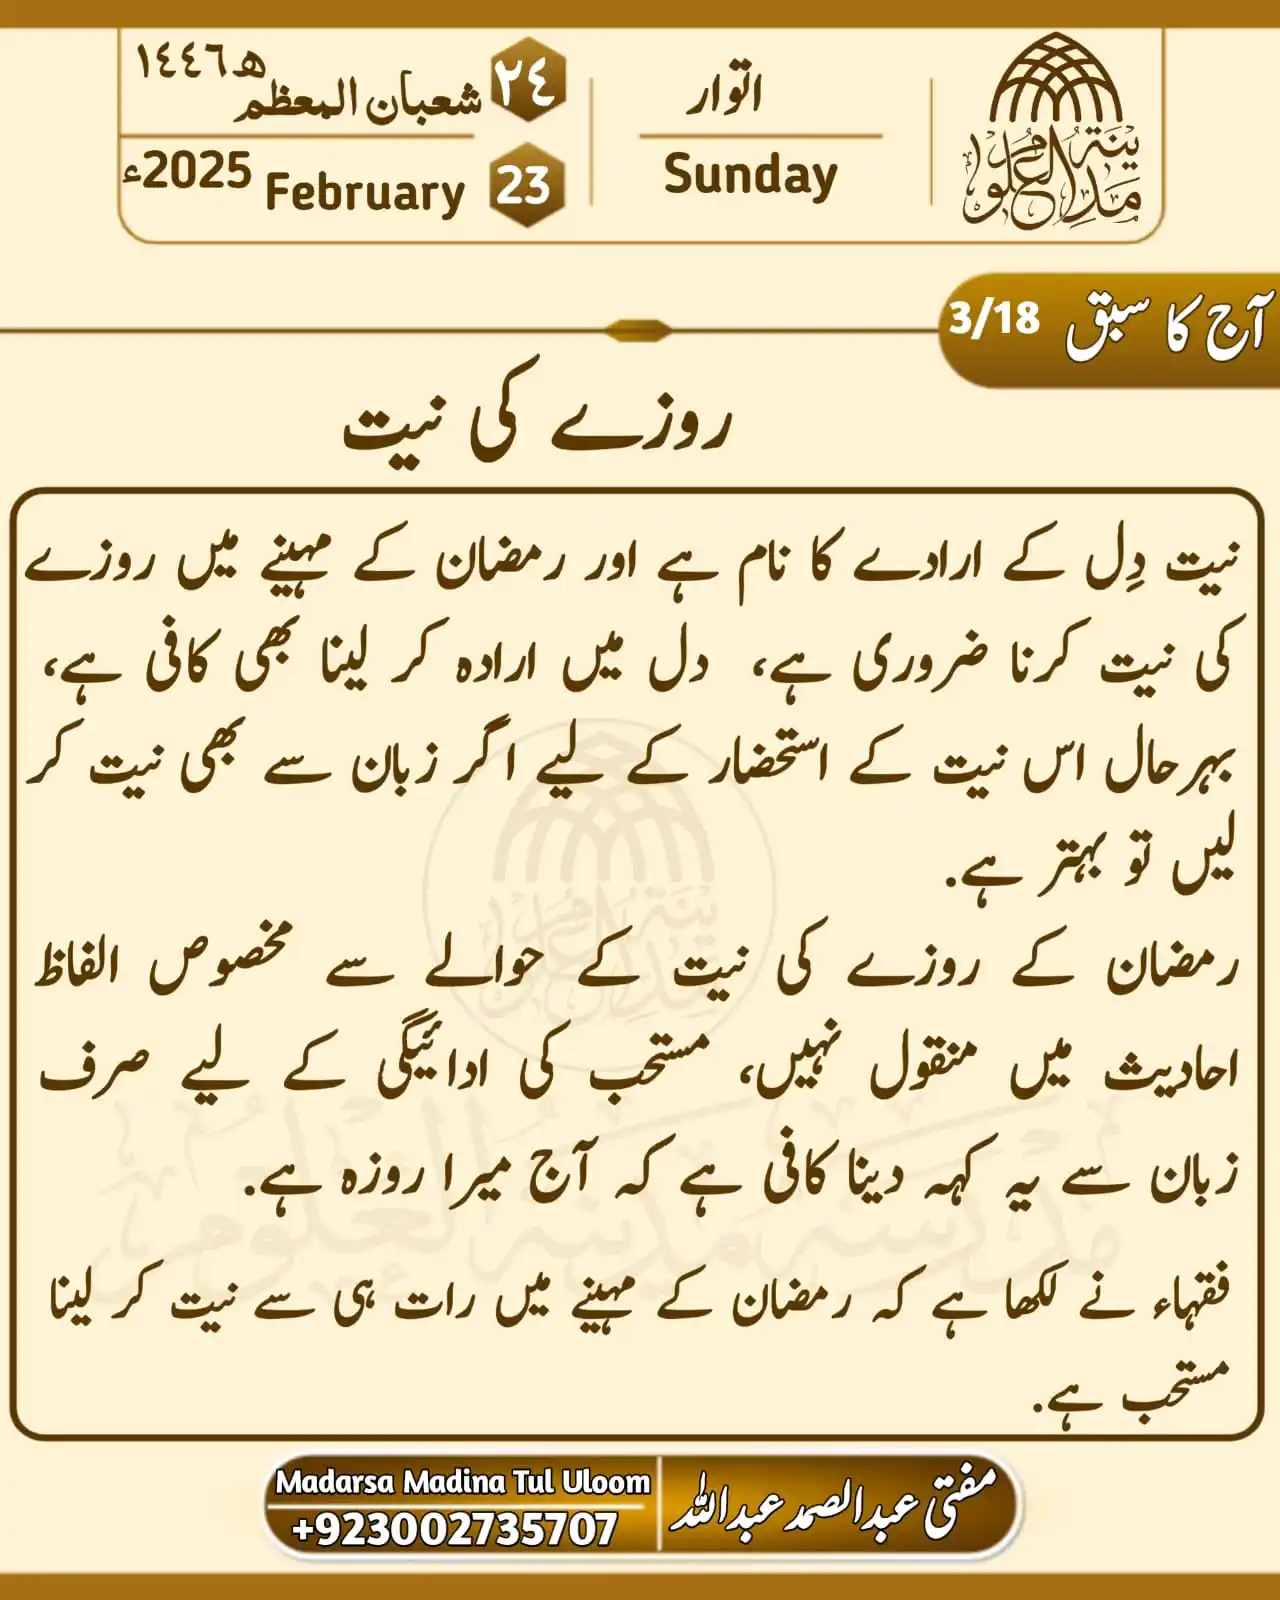 مدینۃ العلوم
اتوار
Sunday
٢٤ شعبان المعظم ١٤٤٦ھ
23 February 2025ء
آج کا سبق 3/18
روزے کی نیت
نیت دِل کے ارادے کا نام ہے اور رمضان کے مہینے میں روزے
کی نیت کرنا ضروری ہے، دل میں ارادہ کر لینا بھی کافی ہے،
بہرحال اس نیت کے استحضار کے لیے اگر زبان سے بھی نیت کر
لیں تو بہتر ہے.
رمضان کے روزے کی نیت کے حوالے سے مخصوص الفاظ
احادیث میں منقول نہیں، مستحب کی ادائیگی کے لیے صرف
زبان سے یہ کہہ دینا کافی ہے کہ آج میرا روزہ ہے.
فقہاء نے لکھا ہے کہ رمضان کے مہینے میں رات ہی سے نیت کر لینا
مستحب ہے.
مدینۃ العلوم
مدرسہ مدینۃ العلوم
مفتی عبدالصمد عبداللہ
Madarsa Madina Tul Uloom
+923002735707